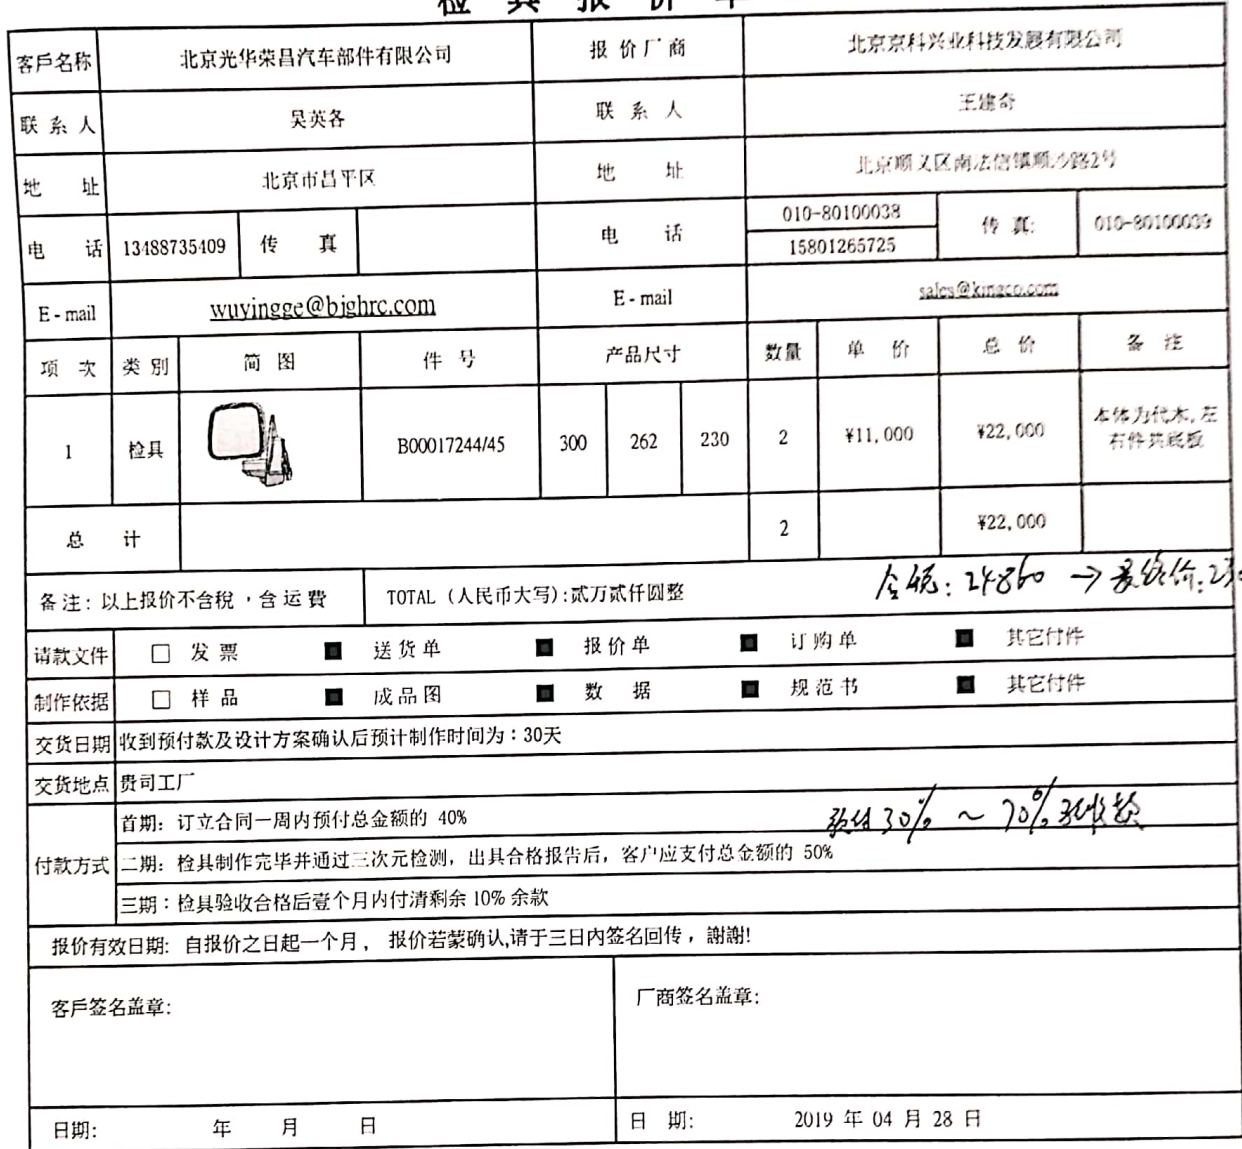 检 具 报 价 单
客戶名称 北京光华荣昌汽车部件有限公司 报价厂商 北京京科兴业科技发展有限公司
联系人 吴英各 联系人 王建奇
地 址 北京市昌平区 地 址 北京顺义区南法信镇顺沙路2号
电 话 13488735409 传 真 电 话 010-80100038 传 真: 010-80100039
15801265725
E-mail wuyingge@bjghrc.com E-mail sales@kingco.com
项 次 类别 简 图 件 号 产品尺寸 数量 单 价 总 价 备 注
1 检具 B00017244/45 300 262 230 2 ¥11,000 ¥22,000 本体为代木,左
右件共底板
总 计 2 ¥22,000
备注:以上报价不含税,含运费 TOTAL(人民币大写):贰万贰仟圆整 含税:24860 → 最终价:
请款文件 □ 发票 ■ 送货单 ■ 报价单 ■ 订购单 ■ 其它付件
制作依据 □ 样品 ■ 成品图 ■ 数 据 ■ 规范书 ■ 其它付件
交货日期 收到预付款及设计方案确认后预计制作时间为:30天
交货地点 贵司工厂
付款方式 首期: 订立合同一周内预付总金额的 40% 预付30% ~ 70%验收款
二期: 检具制作完毕并通过三次元检测,出具合格报告后,客户应支付总金额的 50%
三期:检具验收合格后壹个月内付清剩余 10% 余款
报价有效日期: 自报价之日起一个月, 报价若蒙确认,请于三日内签名回传,謝謝!
客戶签名盖章: 厂商签名盖章:
日期: 年 月 日 日 期: 2019 年 04 月 28 日